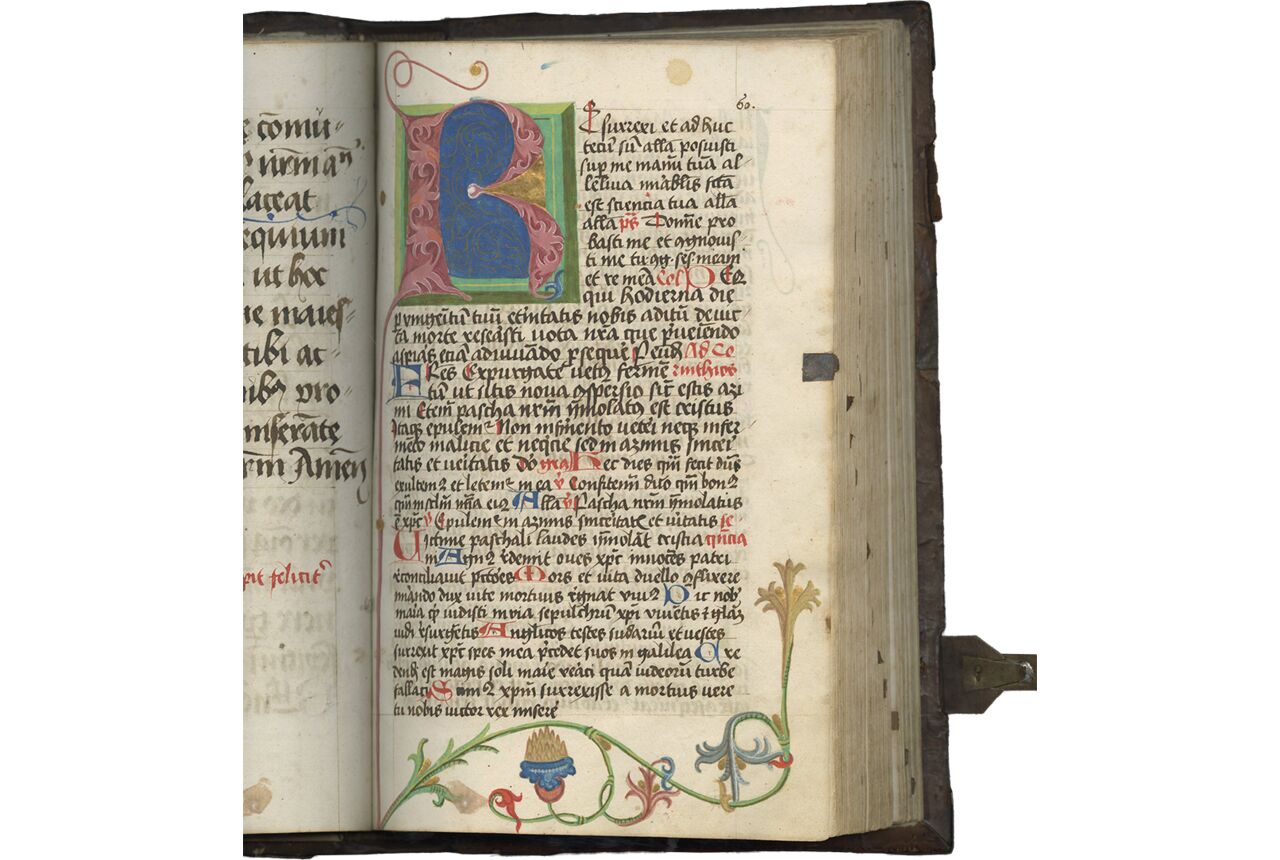 e cōmu
nr̄m a
laceat
equium
ut hoc
ie maies
tibi ac
nib9 pro
miserāte
r̄m Amen
pit felicit
60.
R Esurrexi et adhuc
tecū sū alla posuisti
sup me manū tuā al
leluia mirablis fc̄ta
est sciencia tua alla
alla ps Domne pro
basti me et ꝯgnouis
ti me tu ꝯg ses meam
et re meā Col D Eq
qui hodierna die
p vnigenitū tuū eternitatis nobis aditū deuic
ta morte reserasti uota nr̄a que p̄ueniendo
aspiras etiā adiuuādo p̄seque P eund Ad Co
F Res Expurgate vetus fermē rinthios
tū ut sitis noua ꝯspersio sic̄ estis azi
mi Etem̄ pascha nr̄m ymolatus est cristus
Itaq epulemr Non in fermento veteri neq in fer
mēto malicie et neqcie sed in azimis sinceri
tatis et veritatis do gra H ec dies quā fecit dn̄s
exultemr et letemr in ea v Confitemi dn̄o qm̄ bonr
qm̄ in sclm̄ mīa eius Alla v Pascha nr̄m ymolatus
ē xpc v Epulemr in azimis sinceritatis et v̄itatis se
V ictime paschali laudes ymolāt cristia quēcia
ni Agnr r̄demit oues xpc innocēs patri
r̄conciliauit pctōres Mors et uita duello ꝯflixere
mirādo dux uite mortuus r̄gnat viur Dic nob
maia qd uidisti in via sepulchrū xpi viuentis r glām
uidi r̄surgētis Anglicos testes sudariū et uestes
surrexit xpc spes mea p̄cedet suos in galilea Cre
dendr est magis soli marie veraci quā iudeorū turbe
fallaci Scimr xpm surrexisse a mortuis vere
tu nobis uictor rex miserē